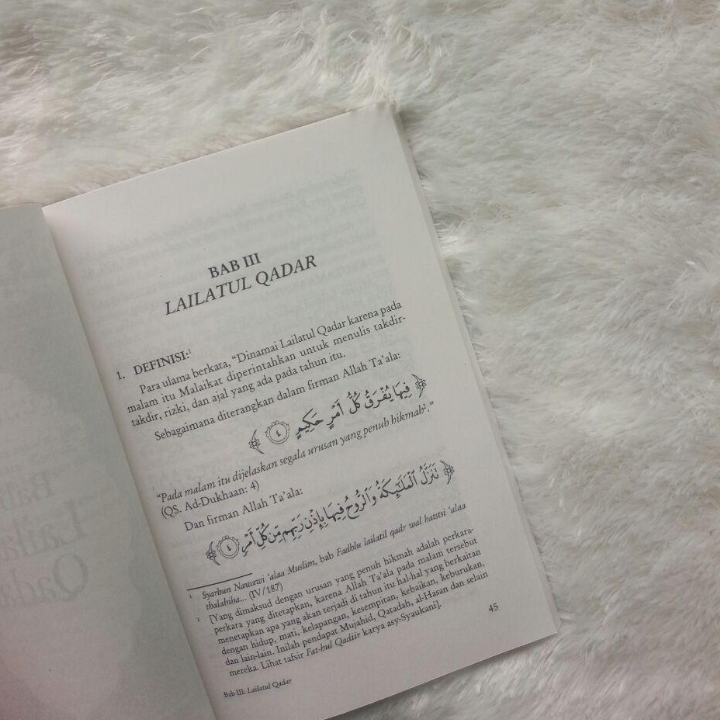 BAB III
LAILATUL QADAR
1. DEFINISI:¹
Para ulama berkata, "Dinamai Lailatul Qadar karena pada
malam itu Malaikat diperintahkan untuk menulis takdir-
takdir, rizki, dan ajal yang ada pada tahun itu.
Sebagaimana diterangkan dalam firman Allah Ta'ala:
﴿ فِيهَا يُفْرَقُ كُلُّ أَمْرٍ حَكِيمٍ ٤ ﴾
"Pada malam itu dijelaskan segala urusan yang penuh hikmah²."
(QS. Ad-Dukhaan: 4)
Dan firman Allah Ta'ala:
﴿ نَزَّلُ الْمَلَٰٓئِكَةُ وَالرُّوحُ فِيهَا بِإِذْنِ رَبِّهِم مِّن كُلِّ أَمْرٍ ٤ ﴾
¹ Syarhun Nawawi 'alaa Muslim, bab Fadhlu lailatil qadr wal hatstsi 'alaa
thalabiha... (IV/187)
² [Yang dimaksud dengan urusan yang penuh hikmah adalah perkara-
perkara yang ditetapkan, karena Allah Ta'ala pada malam tersebut
menetapkan apa yang akan terjadi di tahun itu hal-hal yang berkaitan
dengan hidup, mati, kelapangan, kesempitan, kebaikan, keburukan,
dan lain-lain. Inilah pendapat Mujahid, Qatadah, al-Hasan dan selain
mereka. Lihat tafsir Fat-hul Qadiir karya asy-Syaukani].
45
Bab III: Lailatul Qadar